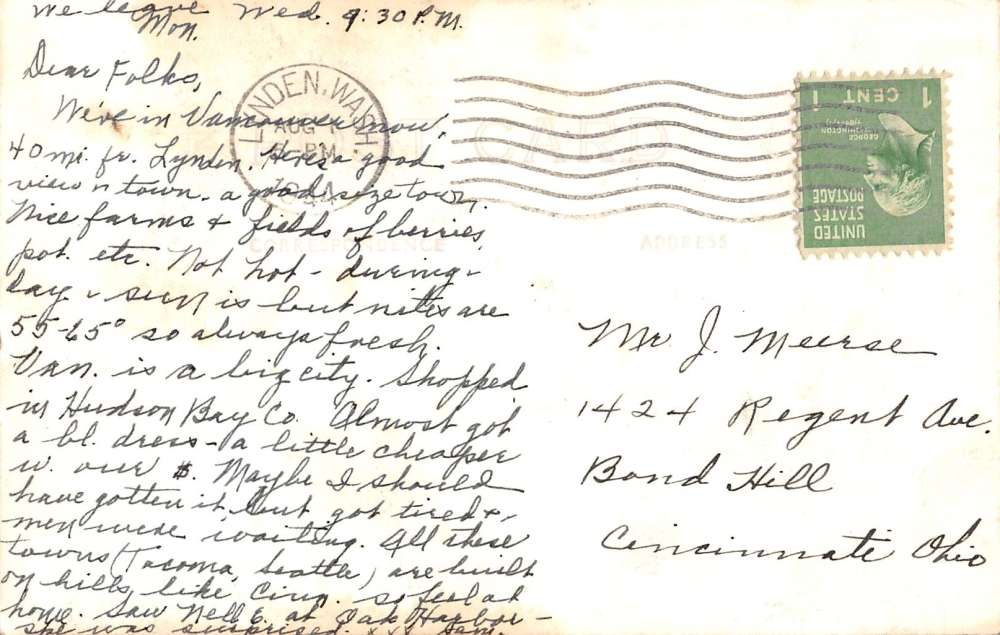 We leave Wed. 9:30 P.M.
Mon.
Dear Folks,
We're in Vancouver now,
40 mi. fr. Lynden. Here's a good
view n town. a good size town.
Nice farms & fields of berries,
pot. etc. Not hot - during
day - sun is but nites are
55-65° so always fresh.
Van. is a big city. Shopped
in Hudson Bay Co. Almost got
a bl. dress - a little cheaper
w. our $. Maybe I should
have gotten it but got tired &
men were waiting. All these
towns (Tacoma, Seattle) are built
on hills, like Cinn. so feel at
home. Saw Nell E. at Oak Harbor -
she was surprised. xxx
LYNDEN, WASH.
AUG
PM
CARD
CORRESPONDENCE
ADDRESS
1 CENT 1
GEORGE
WASHINGTON
UNITED
STATES
POSTAGE
Mr J. Meerse
1424 Regent Ave.
Bond Hill
Cincinnati Ohio